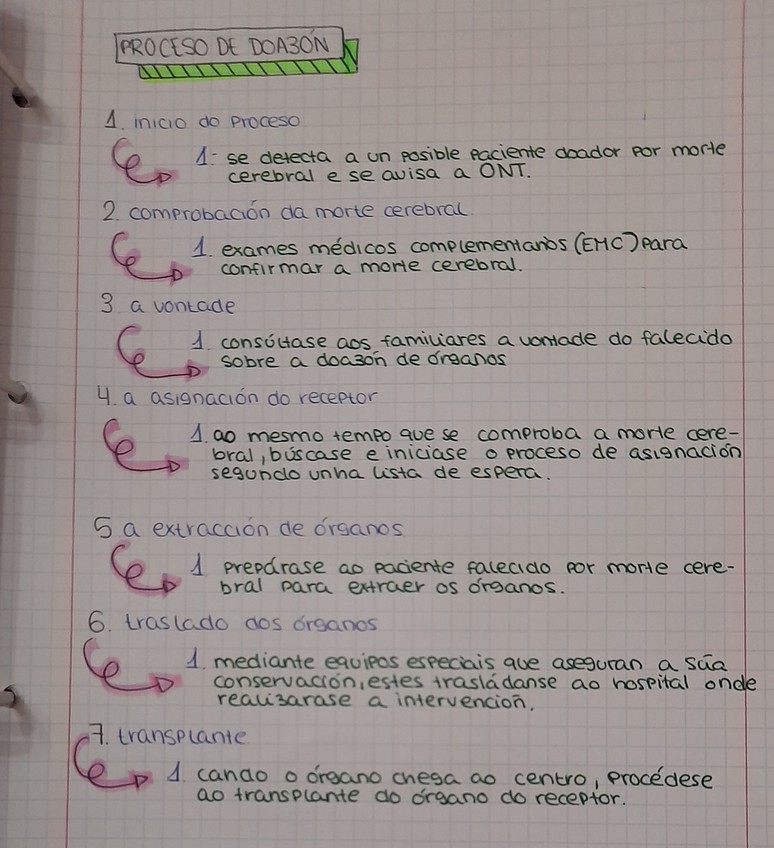 PROCESO DE DOAZÓN
1. inicio do proceso
1- se detecta a un posible paciente doador por morte
cerebral e se avisa a ONT.
2. comprobación da morte cerebral
1. exames médicos complementarios (EMC) para
confirmar a morte cerebral.
3. a vontade
1. consúltase aos familiares a vontade do falecido
sobre a doazón de órganos
4. a asignación do receptor
1. ao mesmo tempo que se comproba a morte cere-
bral, búscase e iniciase o proceso de asignación
segundo unha lista de espera.
5 a extracción de órganos
1 prepárase ao paciente falecido por morte cere-
bral para extraer os órganos.
6. traslado dos órganos
1. mediante equipos especiais que aseguran a súa
conservación, estes trasládanse ao hospital onde
realizarase a intervención.
7. transplante
1. cando o órgano chega ao centro, procédese
ao transplante do órgano do receptor.